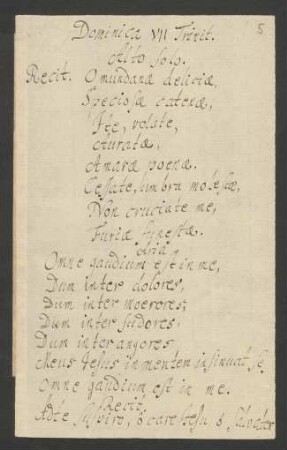 Dominica VII Trinit. 5
Alto solo.
Recit. O mundanæ deliciæ,
Speciosæ catenæ,
Ite, volate,
Auratæ,
Amaræ poenæ.
Cessate, umbræ molestæ,
Non cruciate me,
Furiæ funestæ.
Aria
Omne gaudium est in me,
Dum inter dolores,
Dum inter moerores,
Dum inter sudores,
Dum inter angores
Meus Jesus in mentem insinuat se,
Omne gaudium est in me.
Recit.
Ad te suspiro, o care Jesu o Salvator